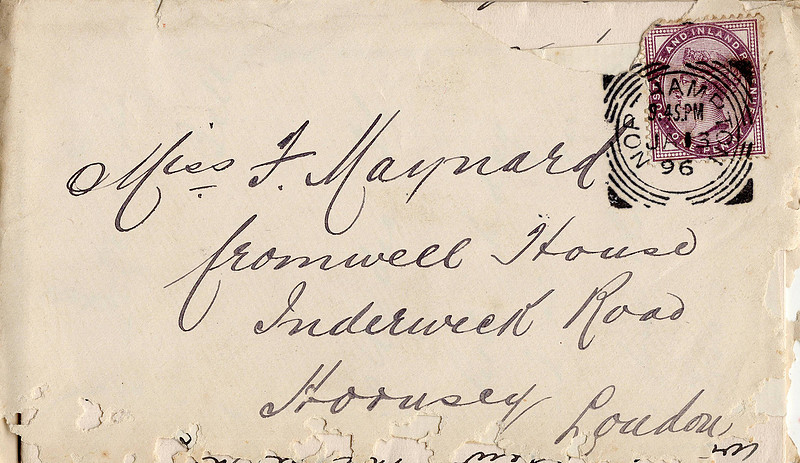 POSTAGE AND INLAND REVENUE
ONE PENNY
9.45.PM
96
Miss F. Maynard
Cromwell House
Inderwick Road
Hornsey
London